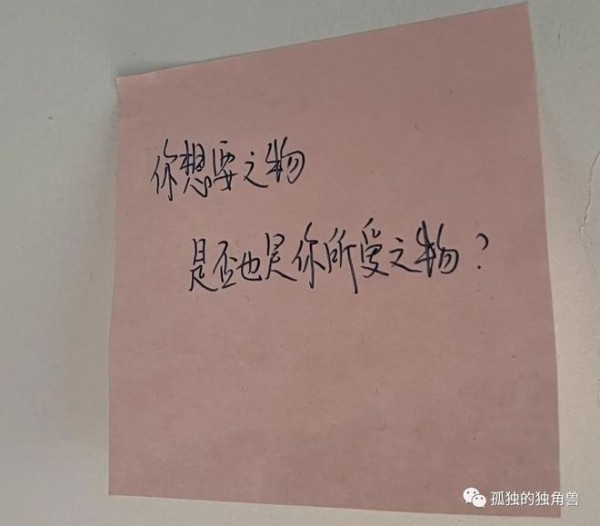 你想要之物
是否也是你所爱之物？
孤独的独角兽